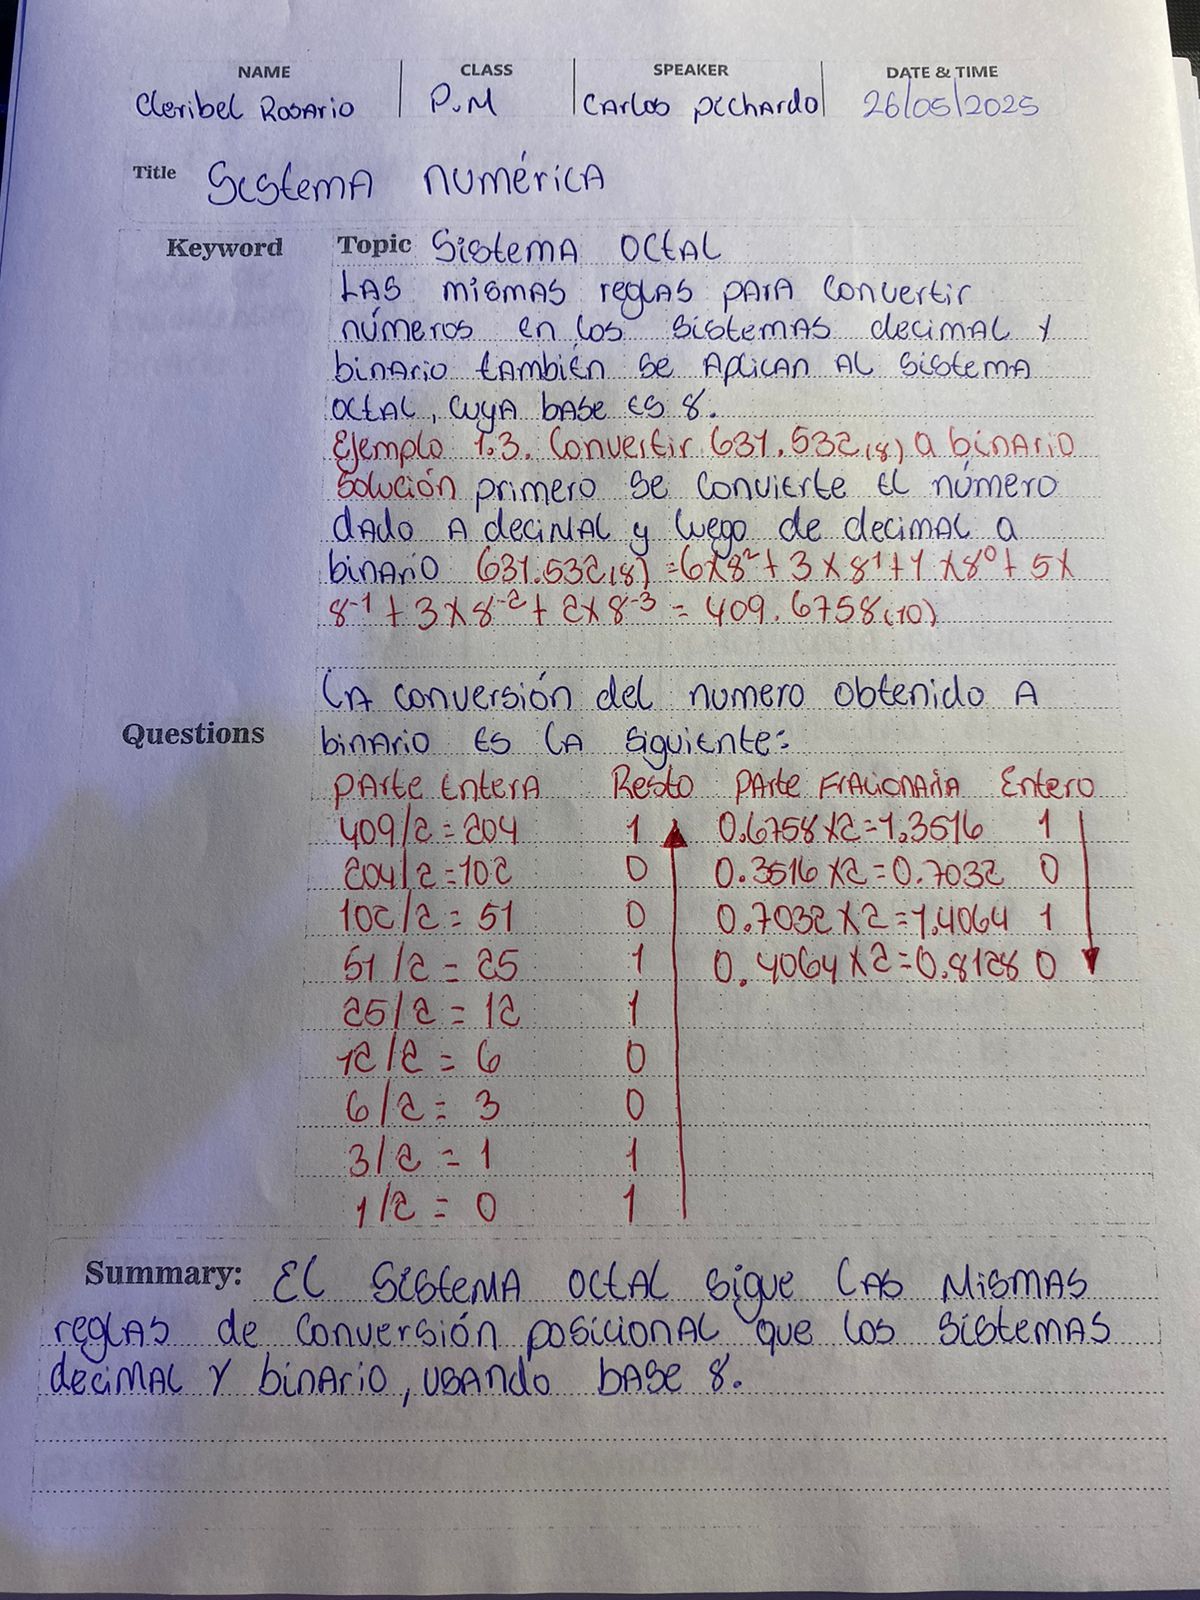 NAME CLASS SPEAKER DATE & TIME
Cleribel Rosario P.M Carlos pichardo 26/05/2025
Title Sistema numérica
Keyword Topic Sistema octal
Las mismas reglas para convertir
números en los sistemas decimal y
binario también se aplican al sistema
octal, cuya base es 8.
Ejemplo 1.3. Convertir 631.532(8) a binario
Solución primero se convierte el número
dado a decimal y luego de decimal a
binario 631.532(8) = 6x8² + 3 x 8¹ + 1 x 8⁰ + 5x
8⁻¹ + 3 x 8⁻² + 2x 8⁻³ = 409.6758(10)
La conversión del numero obtenido a
Questions binario es la siguiente:
Parte Entera Resto Parte Fracionaria Entero
409/2 = 204 1 0.6758 x2=1.3516 1
204/2 = 102 0 0.3516 x2 = 0.7032 0
102/2 = 51 0 0.7032 x 2 = 1.4064 1
51/2 = 25 1 0.4064 x 2 = 0.8128 0
25/2 = 12 1
12/2 = 6 0
6/2 = 3 0
3/2 = 1 1
1/2 = 0 1
Summary: El sistema octal sigue las mismas
reglas de conversión posicional que los sistemas
decimal y binario, usando base 8.